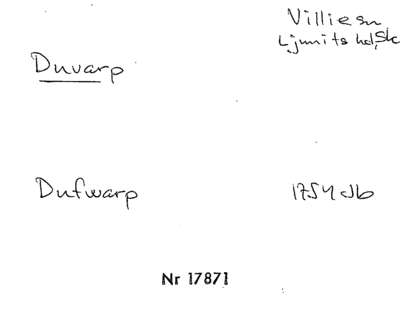 Villie sn
Ljunits hd, Sk
Duvarp
Dufwarp 1754 Jb
Nr 17871